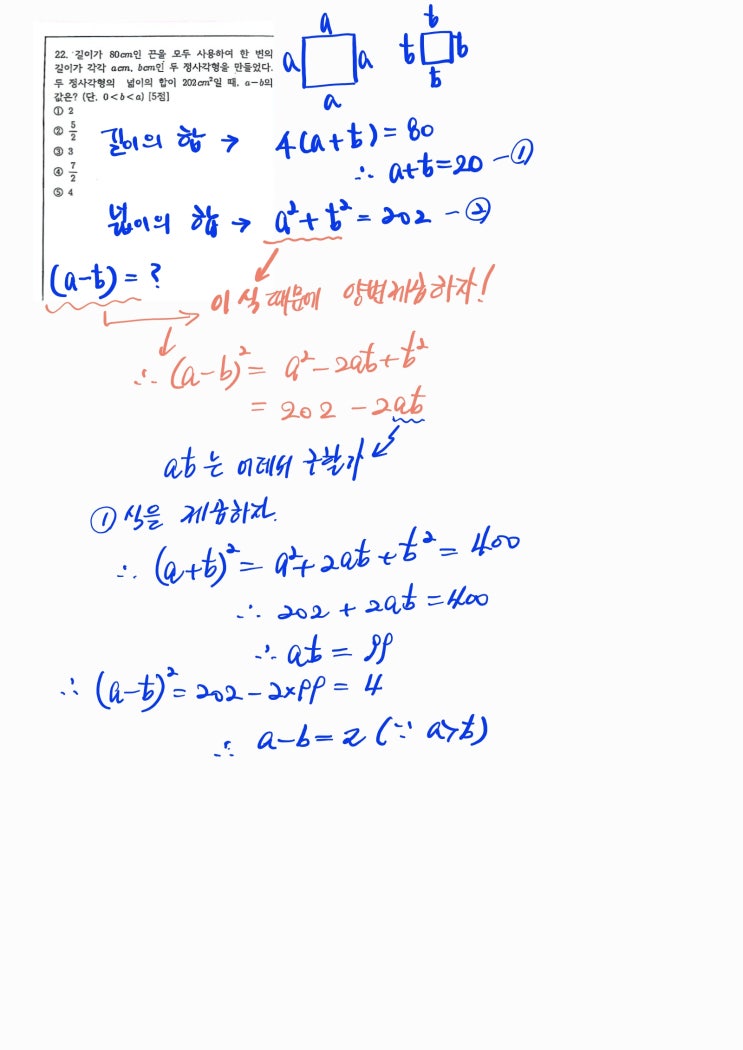 22. 길이가 80cm인 끈을 모두 사용하여 한 변의
길이가 각각 acm, bcm인 두 정사각형을 만들었다.
두 정사각형의 넓이의 합이 202cm²일 때, a-b의
값은? (단, 0<b<a) [5점]
① 2
② 5/2
③ 3
④ 7/2
⑤ 4
a
a
a
a
b
b
b
b
길이의 합 → 4(a+b)=80
∴ a+b=20 -①
넓이의 합 → a²+b²=202 -②
(a-b)=?
이 식 때문에 양변제곱하자!
∴ (a-b)²= a²-2ab+b²
= 202-2ab
ab는 어데서 구할까
① 식을 제곱하자.
∴ (a+b)²= a²+2ab+b²=400
∴ 202+2ab=400
∴ ab=99
∴ (a-b)²=202-2×99=4
∴ a-b=2 (∵ a>b)